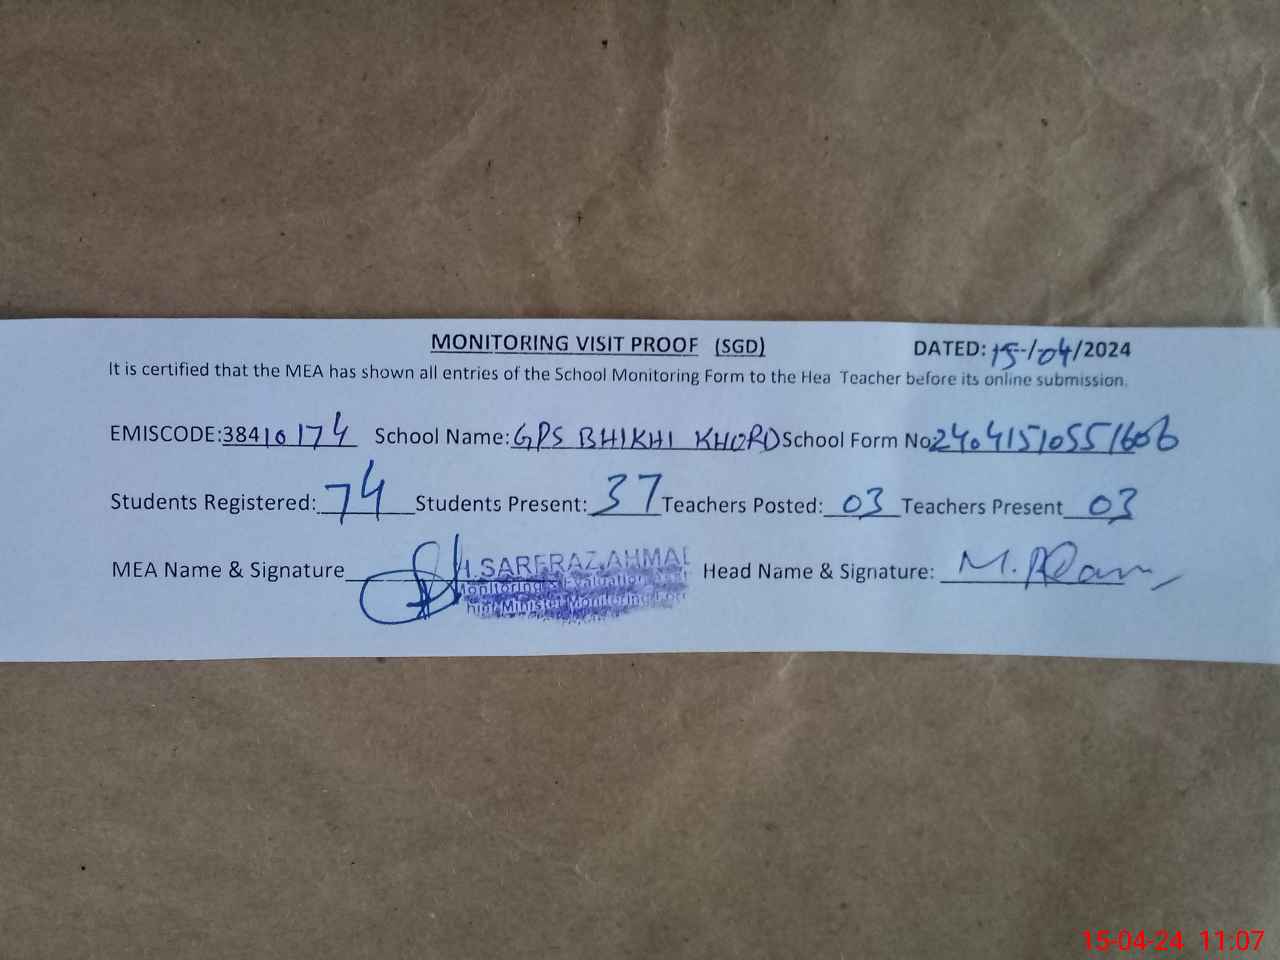 MONITORING VISIT PROOF (SGD) DATED: 15-/04/2024
It is certified that the MEA has shown all entries of the School Monitoring Form to the Hea Teacher before its online submission.
EMISCODE:38410174 School Name: GPS BHIKHI KHORD School Form No 24041510551606
Students Registered: 74 Students Present: 37 Teachers Posted: 03 Teachers Present 03
MEA Name & Signature H.SARFRAZ AHMAD Head Name & Signature: M.
Monitoring & Evaluation
Minister Monitoring
15-04-24 11:07